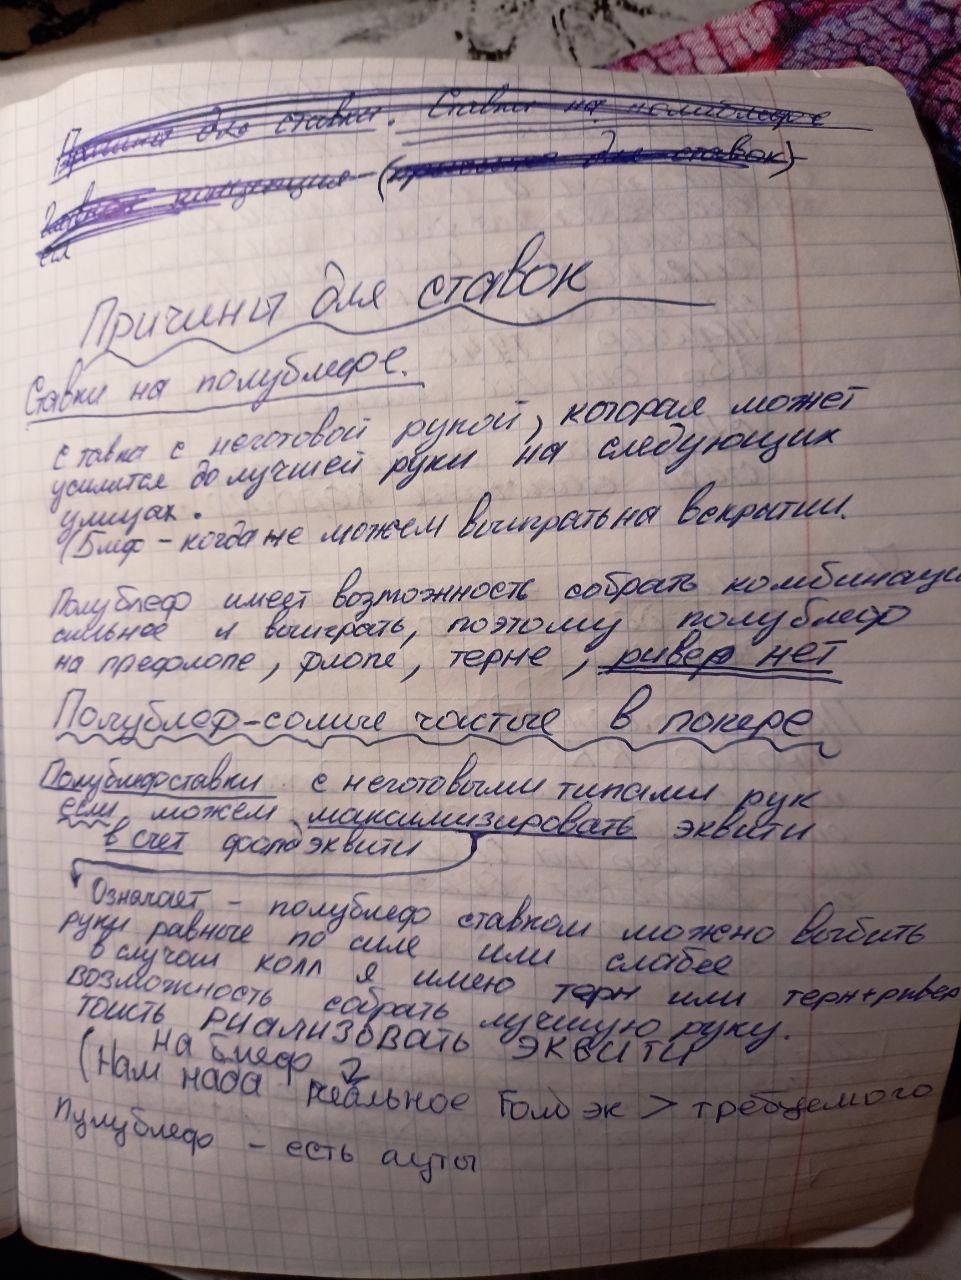 Причина для ставки. Ставки на полублефе
концепция - (причины для ставок)
Причины для ставок
Ставки на полублефе.
ставка с неготовой рукой, которая может
усилится до лучшей руки на следующих
улицах.
(Блеф - когда не можем выиграть на вскрытии.
Полублеф имеет возможность собрать комбинаци
сильное и выиграть, поэтому полублеф
на префлопе, флопе, терне, ривер нет
Полублеф-самые частые в покере
Полублефставки с неготовыми типами рук
если можем максимизировать эквити
в счет фолдэквити
Означает - полублеф ставкой можно выбить
руки равные по силе или слабее
в случаи колл я имею терн или терн+ривер
возможность собрать лучшую руку.
тоисть риализовать эквити
на блеф
(Нам нада реальное Фолд эк > требуемого
Пулублеф - есть ауты